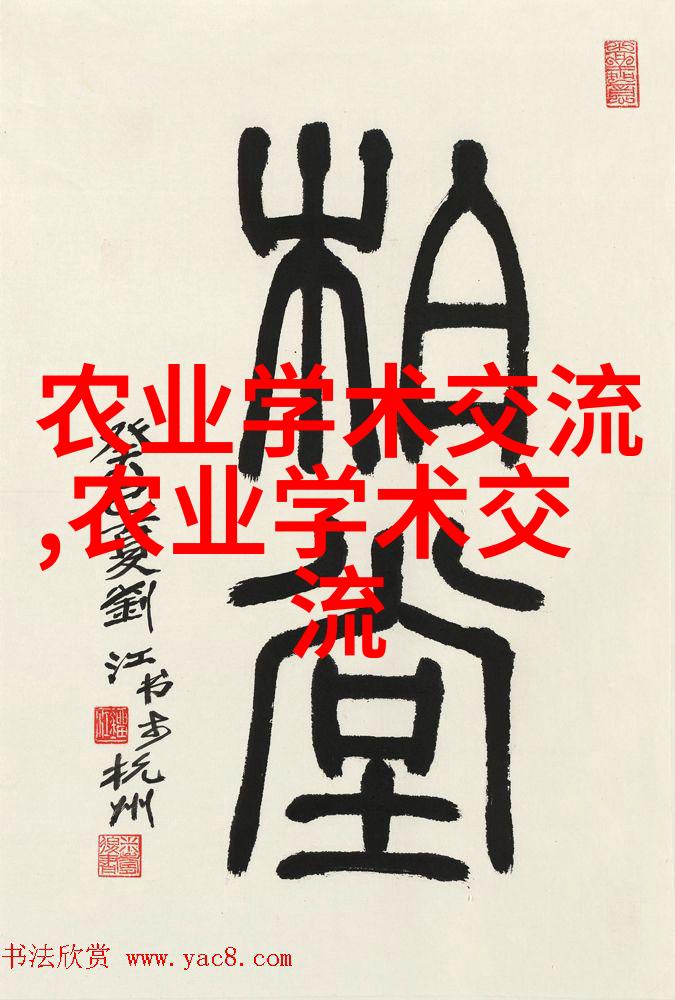 柏堂
癸巳夏劉江书于杭州
农业学术交流
,农业学术交
流
书法欣赏 www.yac8.com